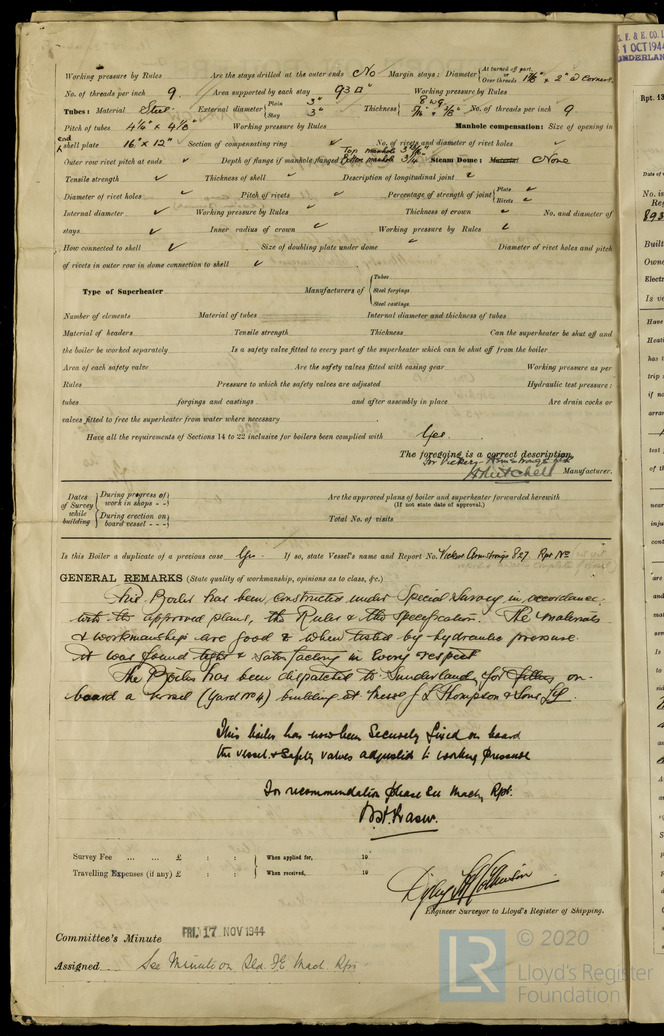 Working pressure by Rules Are the stays drilled at the outer ends No Margin stays: Diameter {At turned off part, or Over threads 1⅞" & 2" @ corners
No. of threads per inch 9. Area supported by each stay 93 □" Working pressure by Rules
Tubes: Material Steel External diameter {Plain 3" Stay 3" Thickness {8 WG 5/16" & 3/8" No. of threads per inch 9
Pitch of tubes 4⅛" x 4⅛" Working pressure by Rules Manhole compensation: Size of opening in
End shell plate 16" x 12" Section of compensating ring No. of rivets and diameter of rivet holes
Outer row rivet pitch at ends Depth of flange if manhole flanged Top manhole Bottom manhole 3¼" Steam Dome: Material None
Tensile strength Thickness of shell Description of longitudinal joint
Diameter of rivet holes Pitch of rivets Percentage of strength of joint {Plate Rivets
Internal diameter Working pressure by Rules Thickness of crown No. and diameter of
stays Inner radius of crown Working pressure by Rules
How connected to shell Size of doubling plate under dome Diameter of rivet holes and pitch
of rivets in outer row in dome connection to shell
Type of Superheater Manufacturers of {Tubes Steel forgings Steel castings
Number of elements Material of tubes Internal diameter and thickness of tubes
Material of headers Tensile strength Thickness Can the superheater be shut off and
the boiler be worked separately Is a safety valve fitted to every part of the superheater which can be shut off from the boiler
Area of each safety valve Are the safety valves fitted with easing gear Working pressure as per
Rules Pressure to which the safety valves are adjusted Hydraulic test pressure:
tubes forgings and castings and after assembly in place Are drain cocks or
valves fitted to free the superheater from water where necessary
Have all the requirements of Sections 14 to 22 inclusive for boilers been complied with Yes.
The foregoing is a correct description,
For Vickers Armstrongs Ltd
Mitchell Manufacturer.
Dates of Survey while building {During progress of work in shops - - Are the approved plans of boiler and superheater forwarded herewith
(If not state date of approval.)
{During erection on board vessel - - - Total No. of visits
Is this Boiler a duplicate of a previous case Yes. If so, state Vessel's name and Report No. Vickers Armstrongs 827. Rpt No
GENERAL REMARKS (State quality of workmanship, opinions as to class, &c.)
This Boiler has been constructed under Special Survey in accordance
with the approved plans, the Rules & the Specification. The materials
& workmanship are good & when tested by hydraulic pressure.
it was found tight & satisfactory in every respect
The Boiler has been dispatched to Sunderland, for fitting on-
board a vessel (Yard No 4) building at Messrs J L Thompson & Sons Ltd.
This boiler has now been securely fixed on board
the vessel & safety valves adjusted to working pressure
For recommendation please see Machy Rpt.
Fraser.
Survey Fee ... ... £ : : When applied for, 19
Travelling Expenses (if any) £ : : When received, 19
Engineer Surveyor to Lloyd's Register of Shipping.
Committee's Minute FRI. 17 NOV 1944
Assigned See Minute on Sld. F.E. Mach. Rpt
© 2020
LR Lloyd's Register
Foundation
1 OCT 1944
Rpt. 13